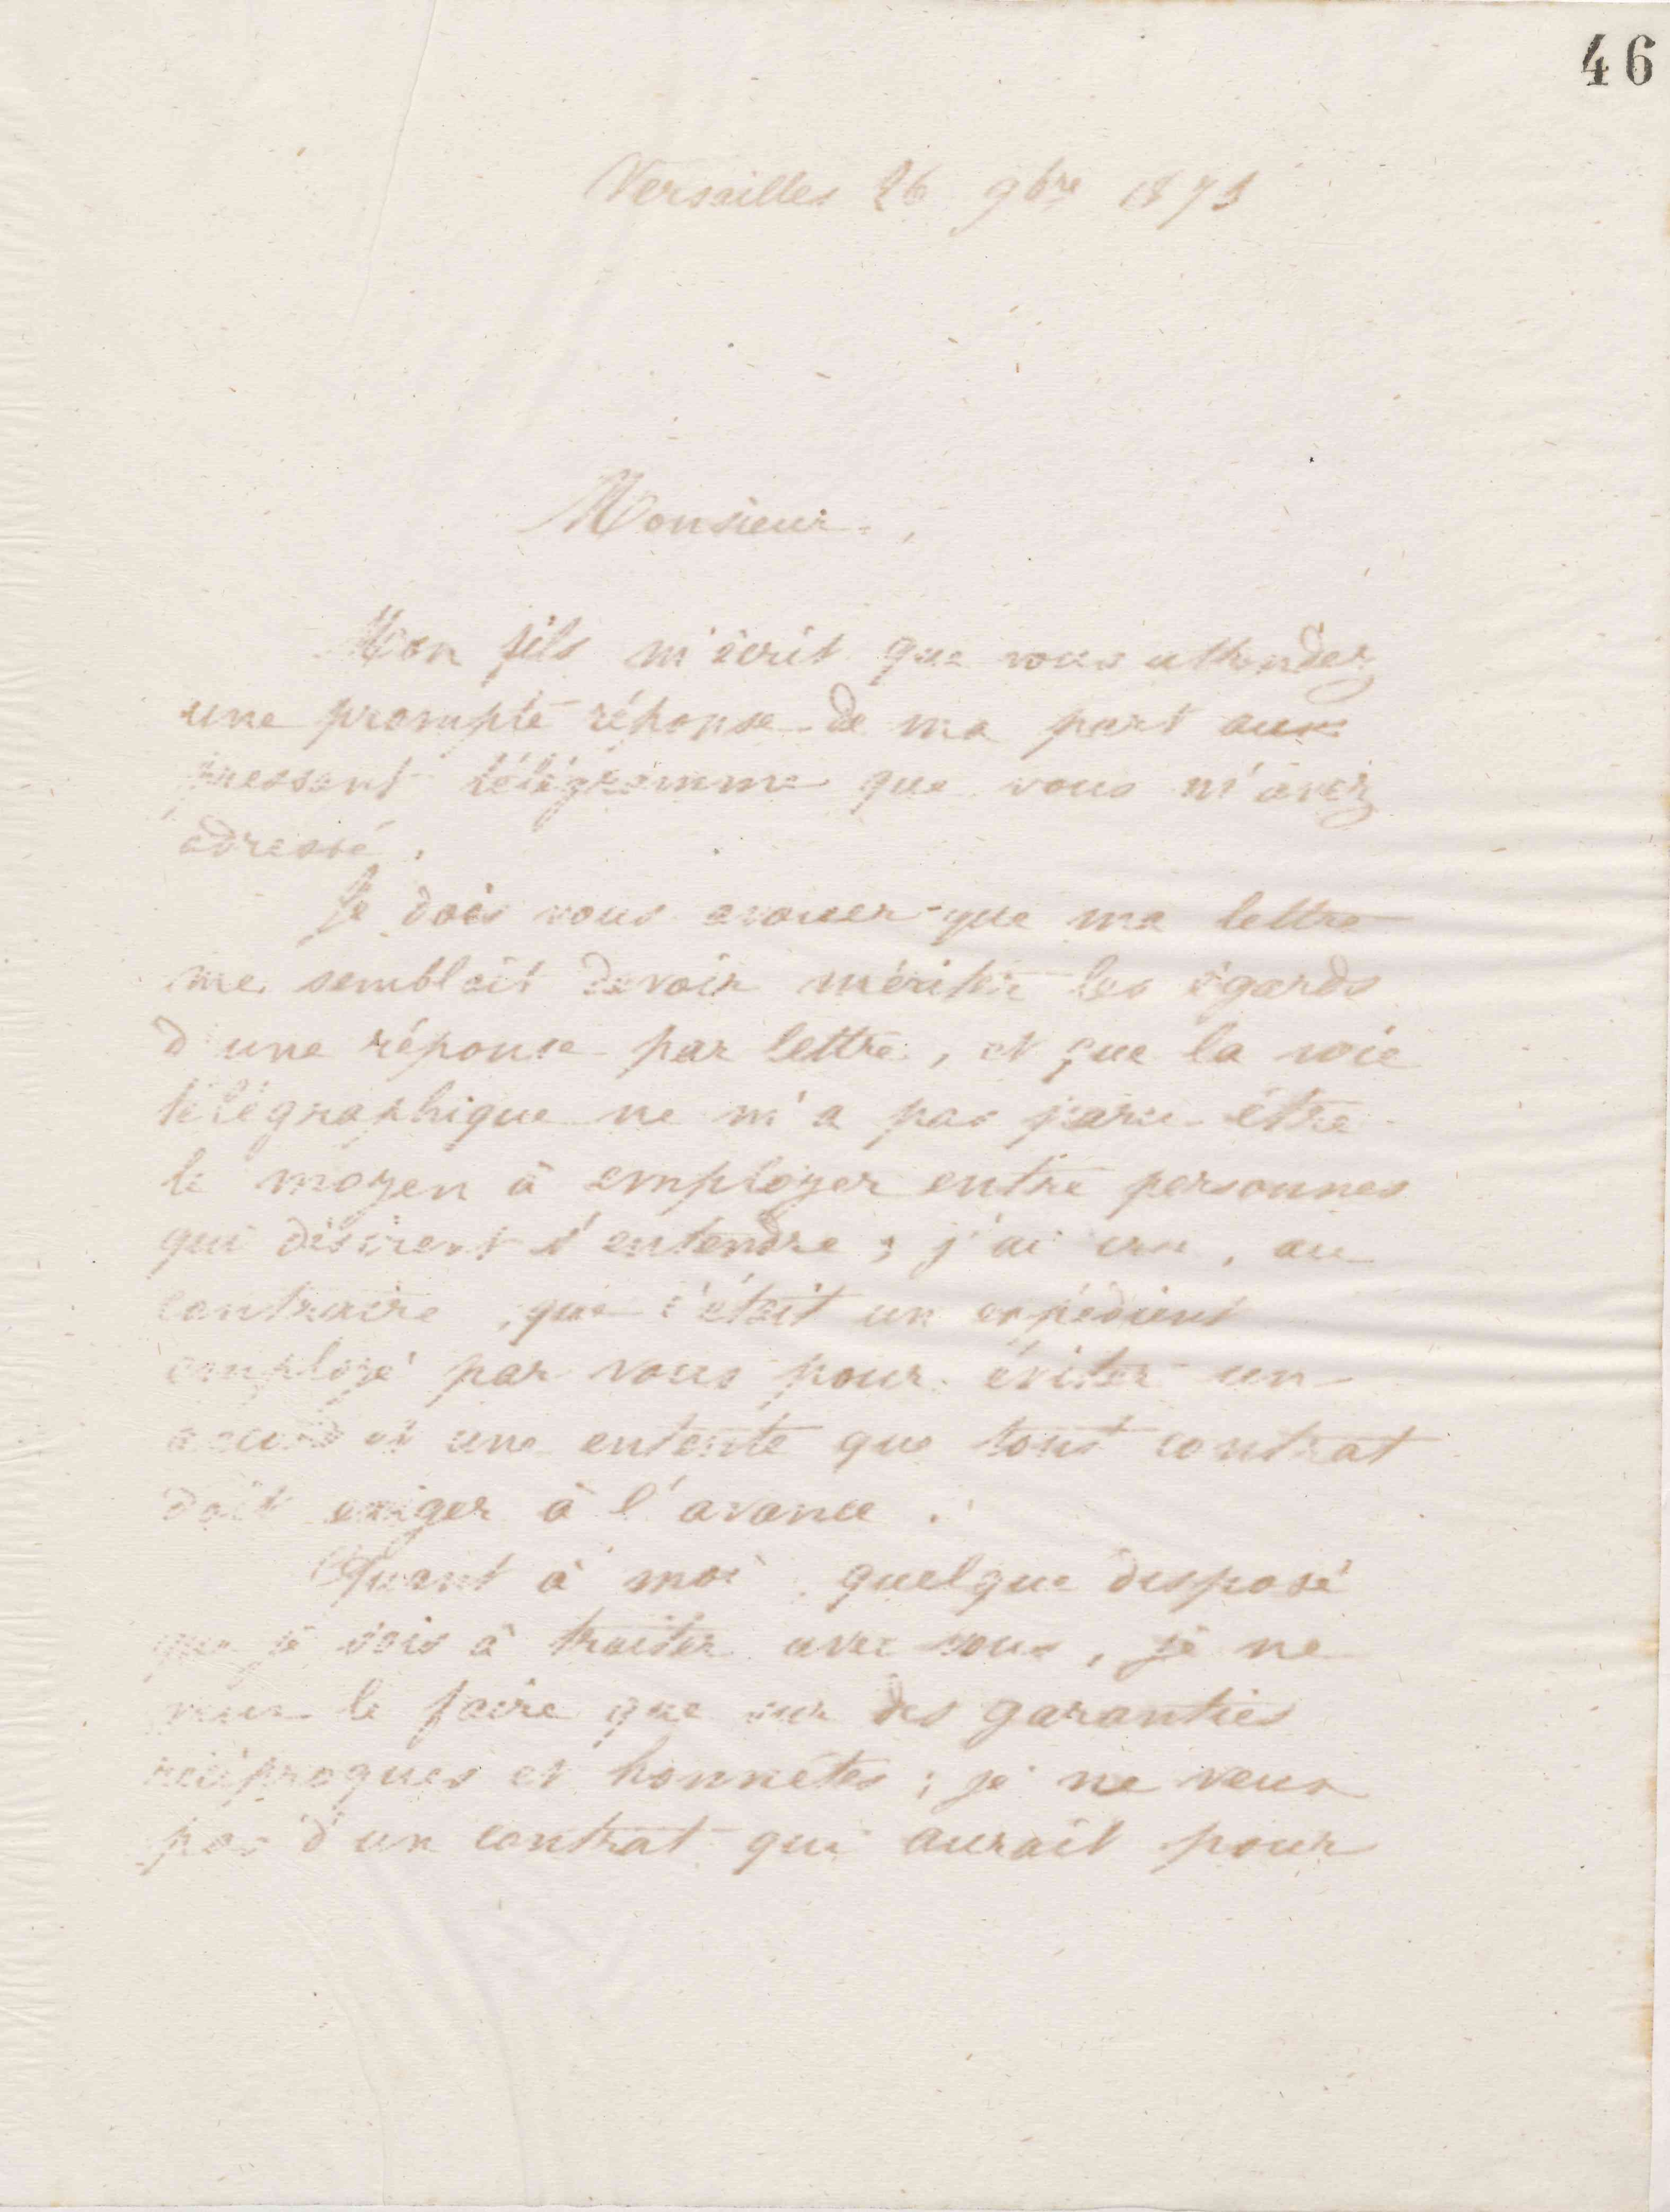 46
Versailles 26 9bre 1873
Monsieur,
Mon fils m'écrit que vous attendez
une prompte réponse de ma part aux
pressant télégramme que vous m'avez
adressé.
Je dois vous avouer que ma lettre
me semblait devoir mériter les égards
d'une réponse par lettre, et que la voie
télégraphique ne m'a pas paru être
le moyen à employer entre personnes
qui désirent s'entendre ; j'ai cru, au
contraire, que c'était un expédient
employé par vous pour éviter un
accord et une entente que tout contrat
doit exiger à l'avance.
Quant à moi, quelque disposé
que je sois à traiter avec vous, je ne
veux le faire que sur des garanties
réciproques et honnêtes ; je ne veux
pas d'un contrat qui aurait pour